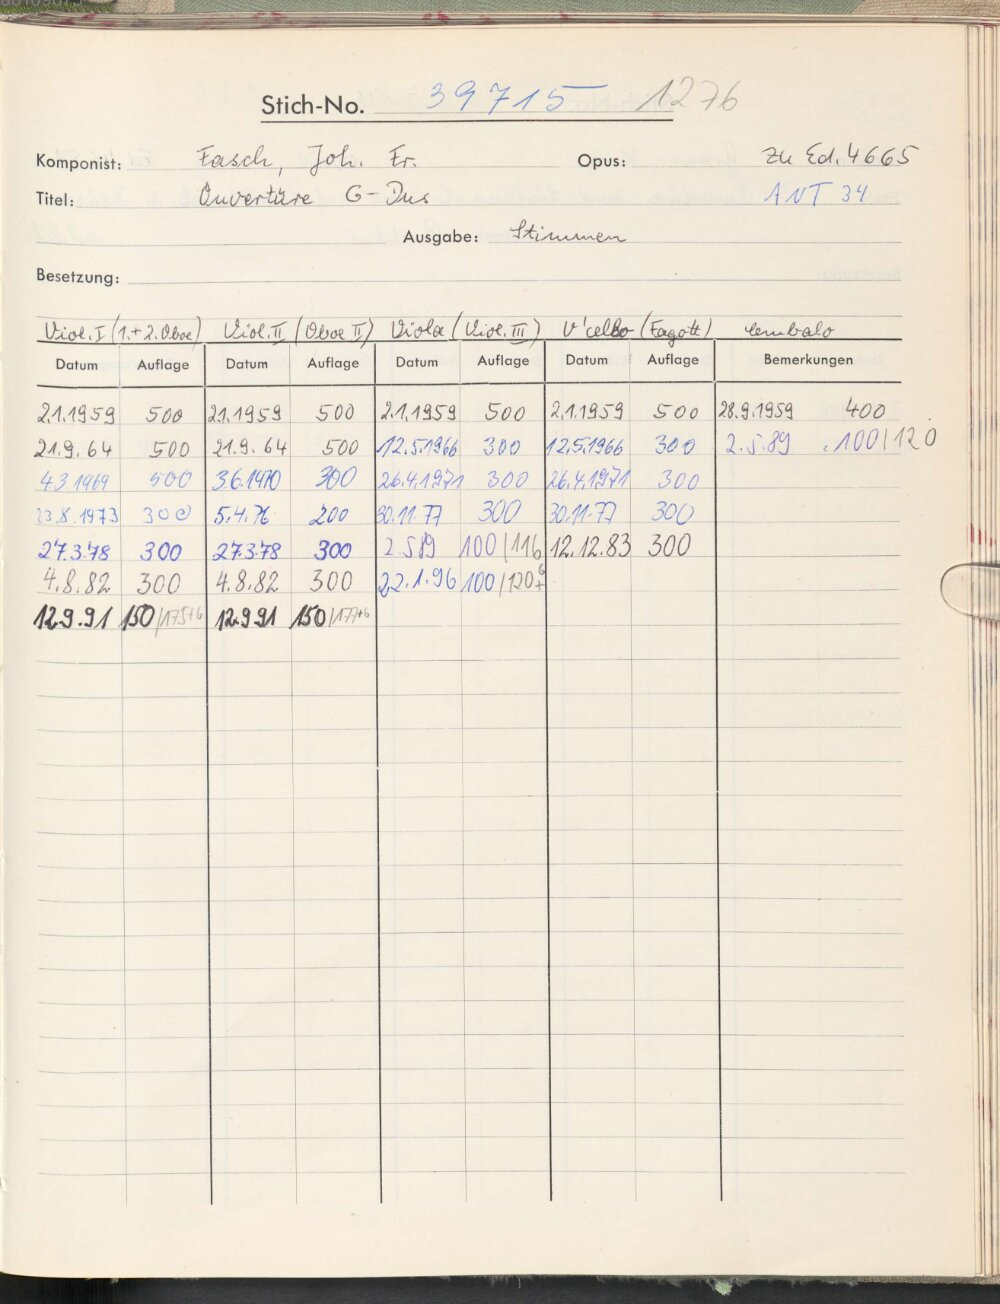 Stich-No. 39715 1276
Komponist: Fasch, Joh. Fr. Opus: zu Ed. 4665
Titel: Ouvertüre G-Dur ANT 34
Ausgabe: Stimmen
Besetzung:
Viol. I (1.+2. Oboe) Viol. II (Oboe II) Viola (Viol. III) V'cello (Fagott) Cembalo
Datum Auflage Datum Auflage Datum Auflage Datum Auflage Bemerkungen
2.1.1959 500 2.1.1959 500 2.1.1959 500 2.1.1959 500 28.9.1959 400
21.9.64 500 21.9.64 500 12.5.1966 300 12.5.1966 300 2.5.89 100/120
4.3.1969 500 3.6.1970 300 26.4.1971 300 26.4.1971 300
23.8.1973 300 5.4.76 200 30.11.77 300 30.11.77 300
27.3.78 300 27.3.78 300 2.5.89 100/116 12.12.83 300
4.8.82 300 4.8.82 300 22.1.96 100/120
12.9.91 150/175+6 12.9.91 150/177+6